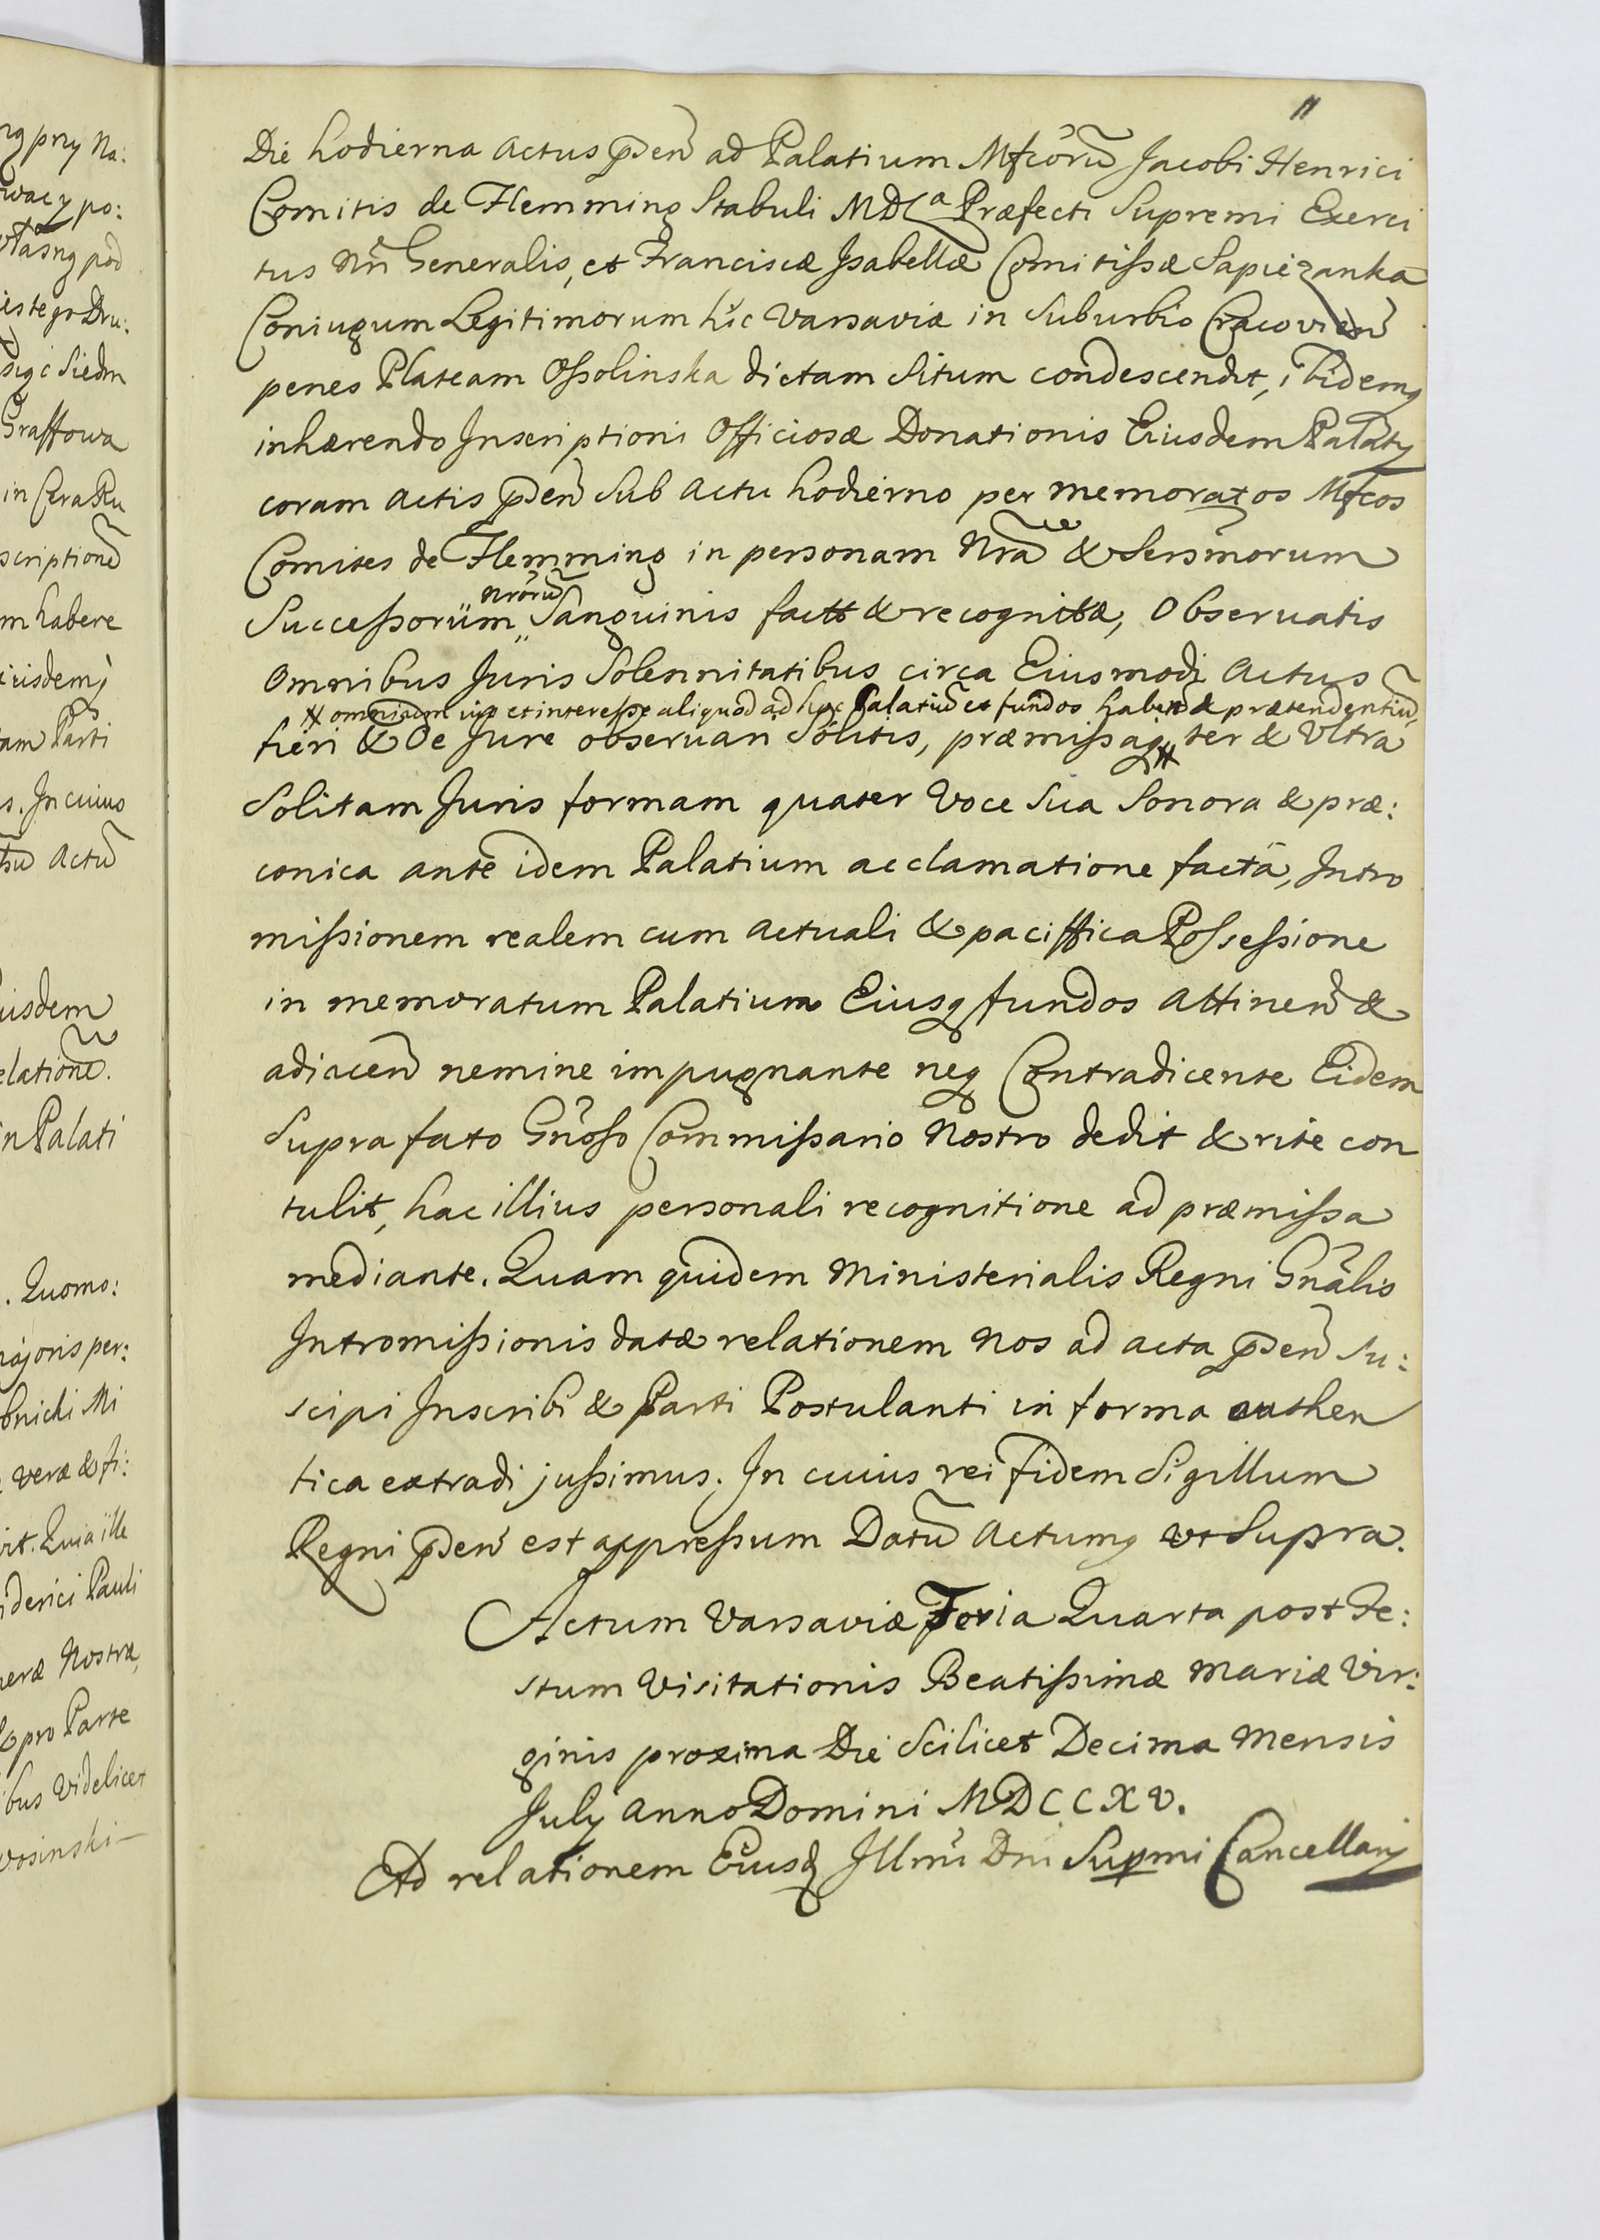 11
Die hodierna actus p̃den̄ ad Palatium Mfcorū Jacobi Henrici
Comitis de Flemming Stabuli MDLa Præfecti Supremi Exerci
tus Nri Generalis, et Franciscæ Isabellæ Comitissæ Sapieżanka
Coniugum Legitimorum hic Varsaviæ in Suburbio Cracovien̄
penes Plateam Ossolinska dictam Situm condescendit, ibidemq
inhærendo Inscriptioni Officiosæ Donationis Eiusdem Palatij
coram actis p̃den̄ sub actu hodierno per memoratos Mfcos
Comites de Flemming in personam Nrã & Sersmorum
Nrorū
Successorum Sanguinis factæ & recognitæ, Observatis
Omnibus Juris Solennitatibus circa Eiusmodi Actus
# omnium jus et interesse aliquod ad hoc Palatiū et fundos haben̄ & prætendentiū,
fieri & De Jure observari Solitis, præmissaq # ter & Ultra
Solitam Juris formam quater Voce Sua Sonora & præ:
conica ante idem Palatium acclamatione facta, Intro
missionem realem cum actuali & paciffica Possessione
in memoratum Palatium Eiusq fundos Attinen̄ &
adiacen̄ nemine impugnante neq Contradicente Eidem
Supra fato Gnoso Commissario Nostro dedit & rite con
tulit, hac illius personali recognitione ad præmissa
mediante. Quam quidem Ministerialis Regni Gnalis
Intromissionis datæ relationem Nos ad acta p̃den̄ su:
scipi Inscribi & Parti Postulanti in forma authen
tica extradi jussimus. In cuius rei fidem Sigillum
Regni p̃den̄ est appressum Datū Actumq ut Supra.
Actum Varsaviæ Feria Quarta post Fe:
stum Visitationis Beatissimæ Mariæ Vir:
ginis proxima Die Scilicet Decima Mensis
July Anno Domini MDCCXV.
Ad relationem Eiusd Illmi Dni Supmi Cancellarij